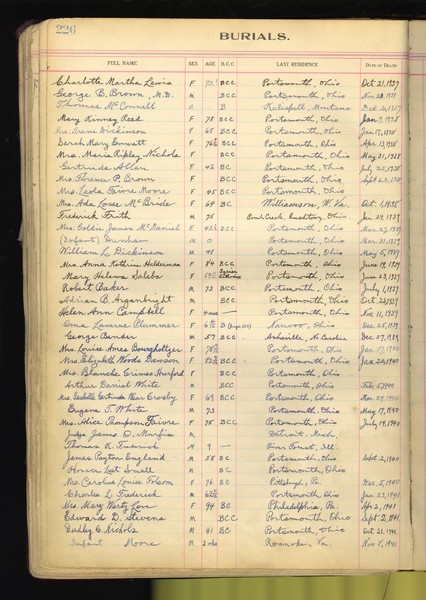 226
BURIALS.
FULL NAME SEX AGE B.U.C. LAST RESIDENCE DATE OF DEATH
Charlotte Martha Lewis F BCC Portsmouth, Ohio Oct 21, 1937
George B. Brown, M.D. M BCC Portsmouth, Ohio Nov 28, 1937
Thomas McConnell B Kalispell, Montana Dec 2, 1937
Mary Kinney Reed F 78 BCC Portsmouth, Ohio Jan 9, 1938
Mrs. Irene Dickinson F 65 BCC Portsmouth, Ohio Jan 17, 1938
Sarah Mary Emmett F 76 BCC Portsmouth, Ohio Apr 13, 1938
Mrs. Maria Ripley Nichols F BCC Portsmouth, Ohio May 31, 1938
Gertrude Allen F 42 BC Portsmouth, Ohio July 25, 1938
Mrs. Florence P. Brown F BCC Portsmouth, Ohio Sept 22, 1938
Mrs. Leola Faivre Moore F 45 BCC Portsmouth, Ohio
Mrs. Ada Losee McBride F 64 BC Williamson, W. Va. Oct 1, 1938
Frederick Frith M 75 Pond Creek, Ohio Jan 24, 1939
Mrs. Goldie James McDaniel F 42 BCC Portsmouth, Ohio Mar 27, 1939
(Infant) Dunham M 0 Portsmouth, Ohio Mar 31, 1939
William L. Dickinson M 41 Portsmouth, Ohio May 5, 1939
Mrs. Anna Kathrin Holderman F 84 BCC Portsmouth, Ohio June 19, 1939
Mary Helena Salebs F 59 Portsmouth, Ohio June 23, 1939
Robert Baker M 73 BCC Portsmouth, Ohio July 1, 1939
Adrian B. Argenbright M BCC Portsmouth, Ohio Oct 22, 1939
Helen Ann Campbell F 4 mos — Portsmouth, Ohio Nov 11, 1939
Oma Laurie Plummer F 6 B Ohio Dec 25, 1939
George Bender M 57 BCC Asheville, N. Carolina Dec 27, 1939
Mrs. Louise Ames F 76 Portsmouth, Ohio Jan 17, 1940
Mrs. Elizabeth Woods Dawson F 82 BCC Portsmouth, Ohio Jan 22, 1940
Mrs. Blanche Grimes Hurford F BCC Portsmouth, Ohio
Arthur Daniel White M BCC Portsmouth, Ohio Feb 5, 1940
Mrs. Isabelle Gertrude Crosby F 64 BCC Portsmouth, Ohio Mar 29, 1940
Eugene T. White M 73 Portsmouth, Ohio May 7, 1940
Mrs. Alice Thompson Faivre F 75 BCC Portsmouth, Ohio July 14, 1940
Judge James O. Murfin M Detroit, Mich.
Thomas R. Frederick M 9 — Ill.
James Peyton England M 58 BC Portsmouth, Ohio Sept 3, 1940
Horace Leet Small M BC Portsmouth, Ohio
Mrs. Caroline Louise Folsom F 76 BC Pittsburgh, Pa. Dec 5, 1940
Charles L. Frederick M 62 Portsmouth, Ohio Jan 23, 1941
Mrs. Mary Wertz Love F 94 BC Philadelphia, Pa. Apr 2, 1941
Edward D. Stevens M BCC Portsmouth, Ohio Sept 2, 1941
Dudley C. Nichols M 41 BC Portsmouth, Ohio Oct 21, 1941
Infant Moore M Roanoke, Va. Nov 8, 1941